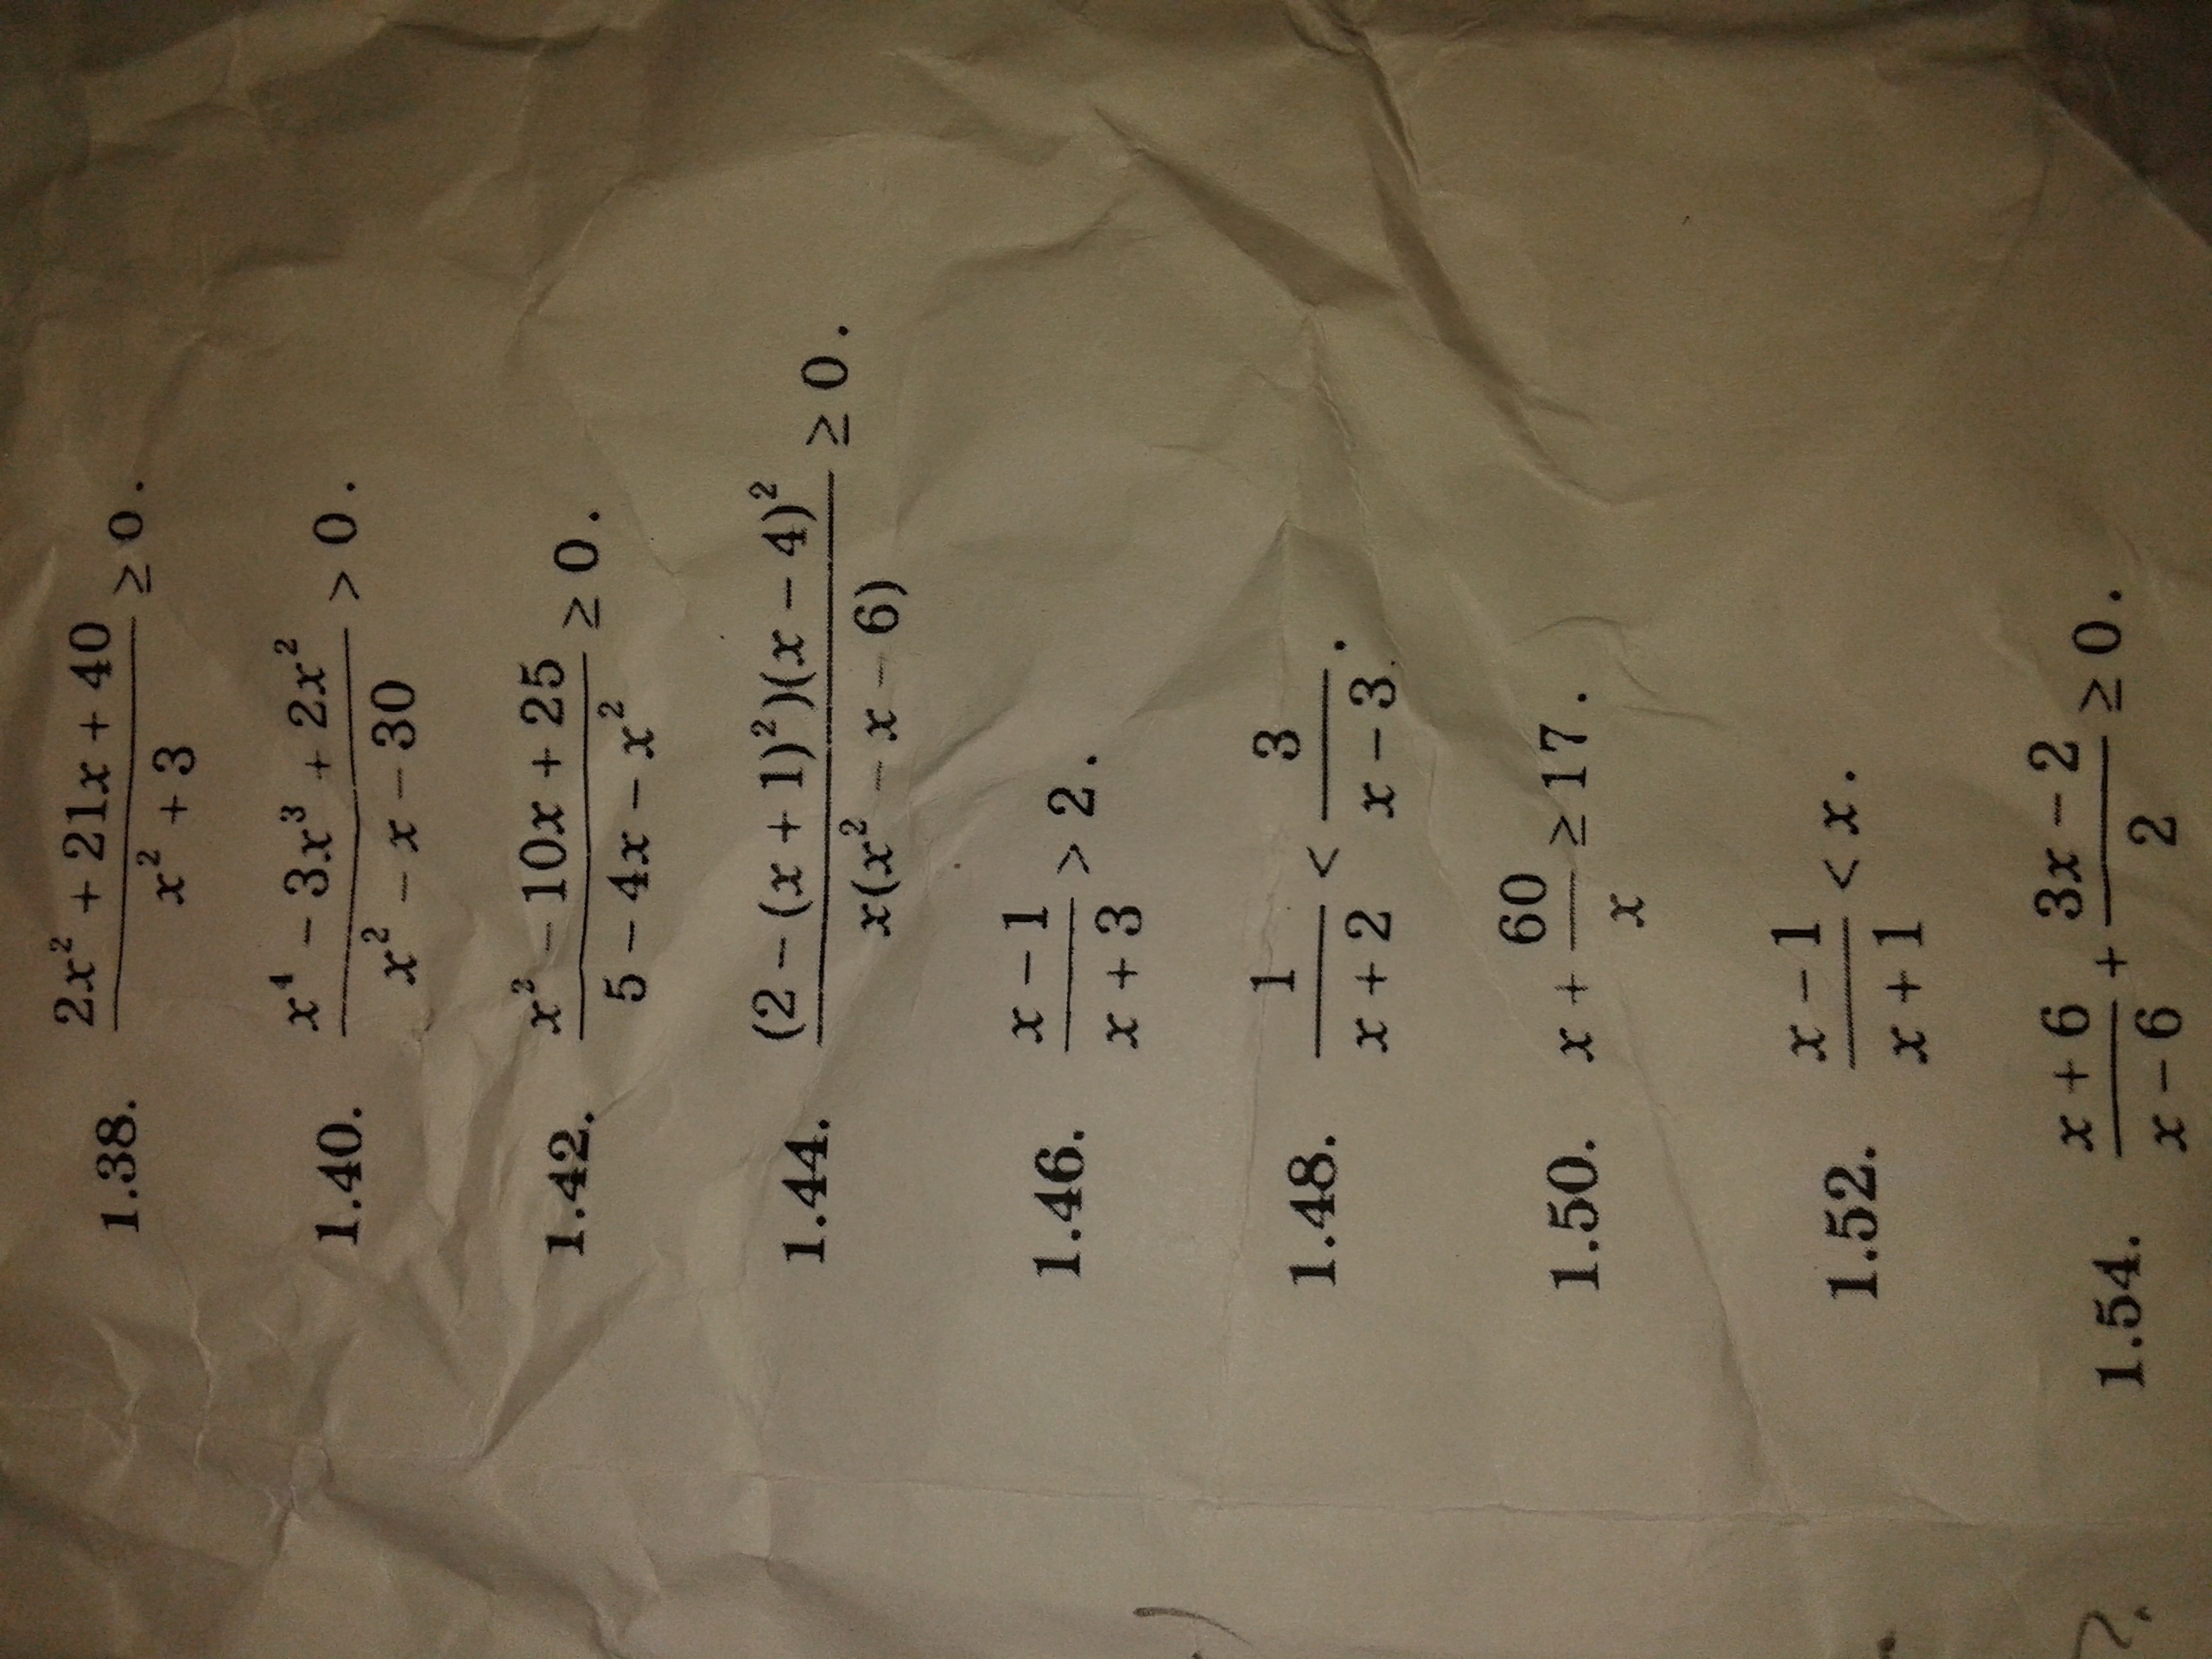 1.38. \frac{2x^2 + 21x + 40}{x^2 + 3} ≥ 0.
1.40. \frac{x^4 - 3x^3 + 2x^2}{x^2 - x - 30} > 0.
1.42. \frac{x^2 - 10x + 25}{5 - 4x - x^2} ≥ 0.
1.44. \frac{(2 - (x + 1)^2)(x - 4)^2}{x(x^2 - x - 6)} ≥ 0.
1.46. \frac{x - 1}{x + 3} > 2.
1.48. \frac{1}{x + 2} < \frac{3}{x - 3}.
1.50. x + \frac{60}{x} ≥ 17.
1.52. \frac{x - 1}{x + 1} < x.
1.54. \frac{x + 6}{x - 6} + \frac{3x - 2}{2} ≥ 0.